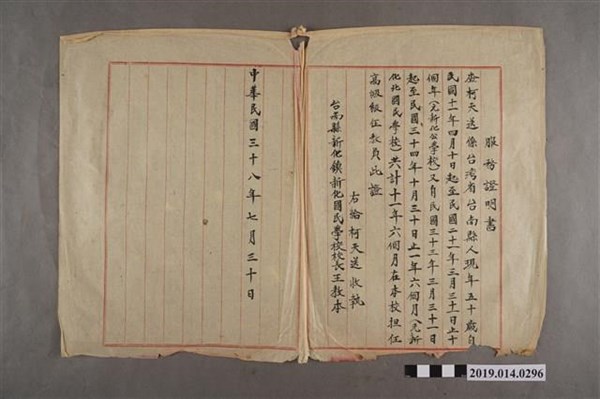 服務證明書
查柯天送係台湾省台南縣人現年五十歲自
民國十一年四月十日起至民國二十一年三月三十一日止十
個年(元新化公學校)又自民國三十三年三月三十一日
起至民國三十四年十月三十日止一年六個月(元新
化北國民學校)共計十一年六個月在本校担任
高級級任教員此證
右給柯天送收執
台南縣新化鎮新化國民學校校長王教本
中華民國三十八年七月三十日
2019.014.0296